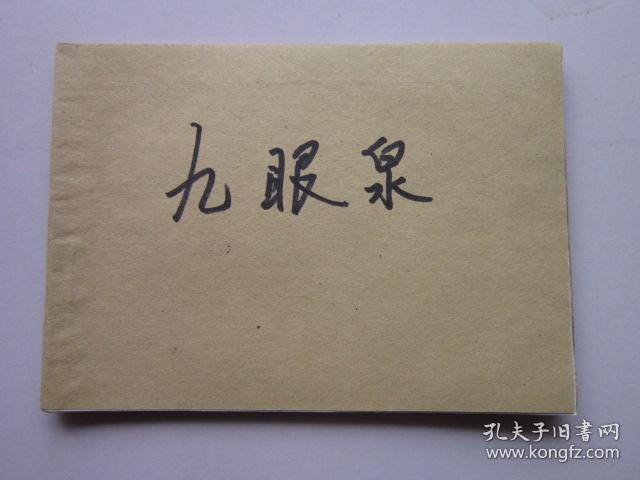 九眼泉
孔夫子旧書网
www.kongfz.com